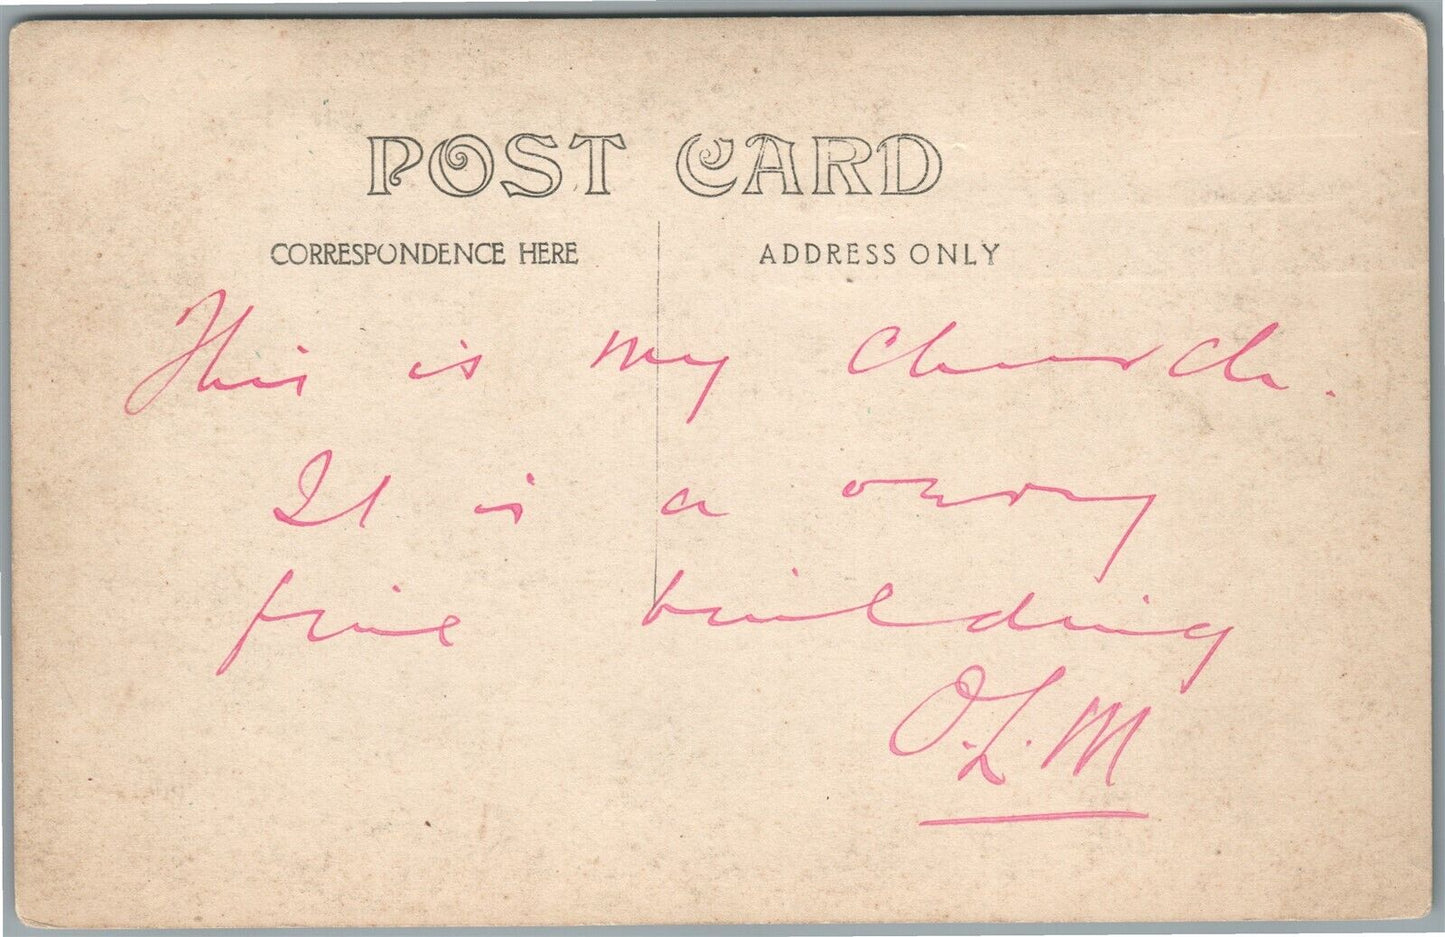 POST CARD
CORRESPONDENCE HERE
ADDRESS ONLY
This is my church.
It is a very
fine building
O.L.M